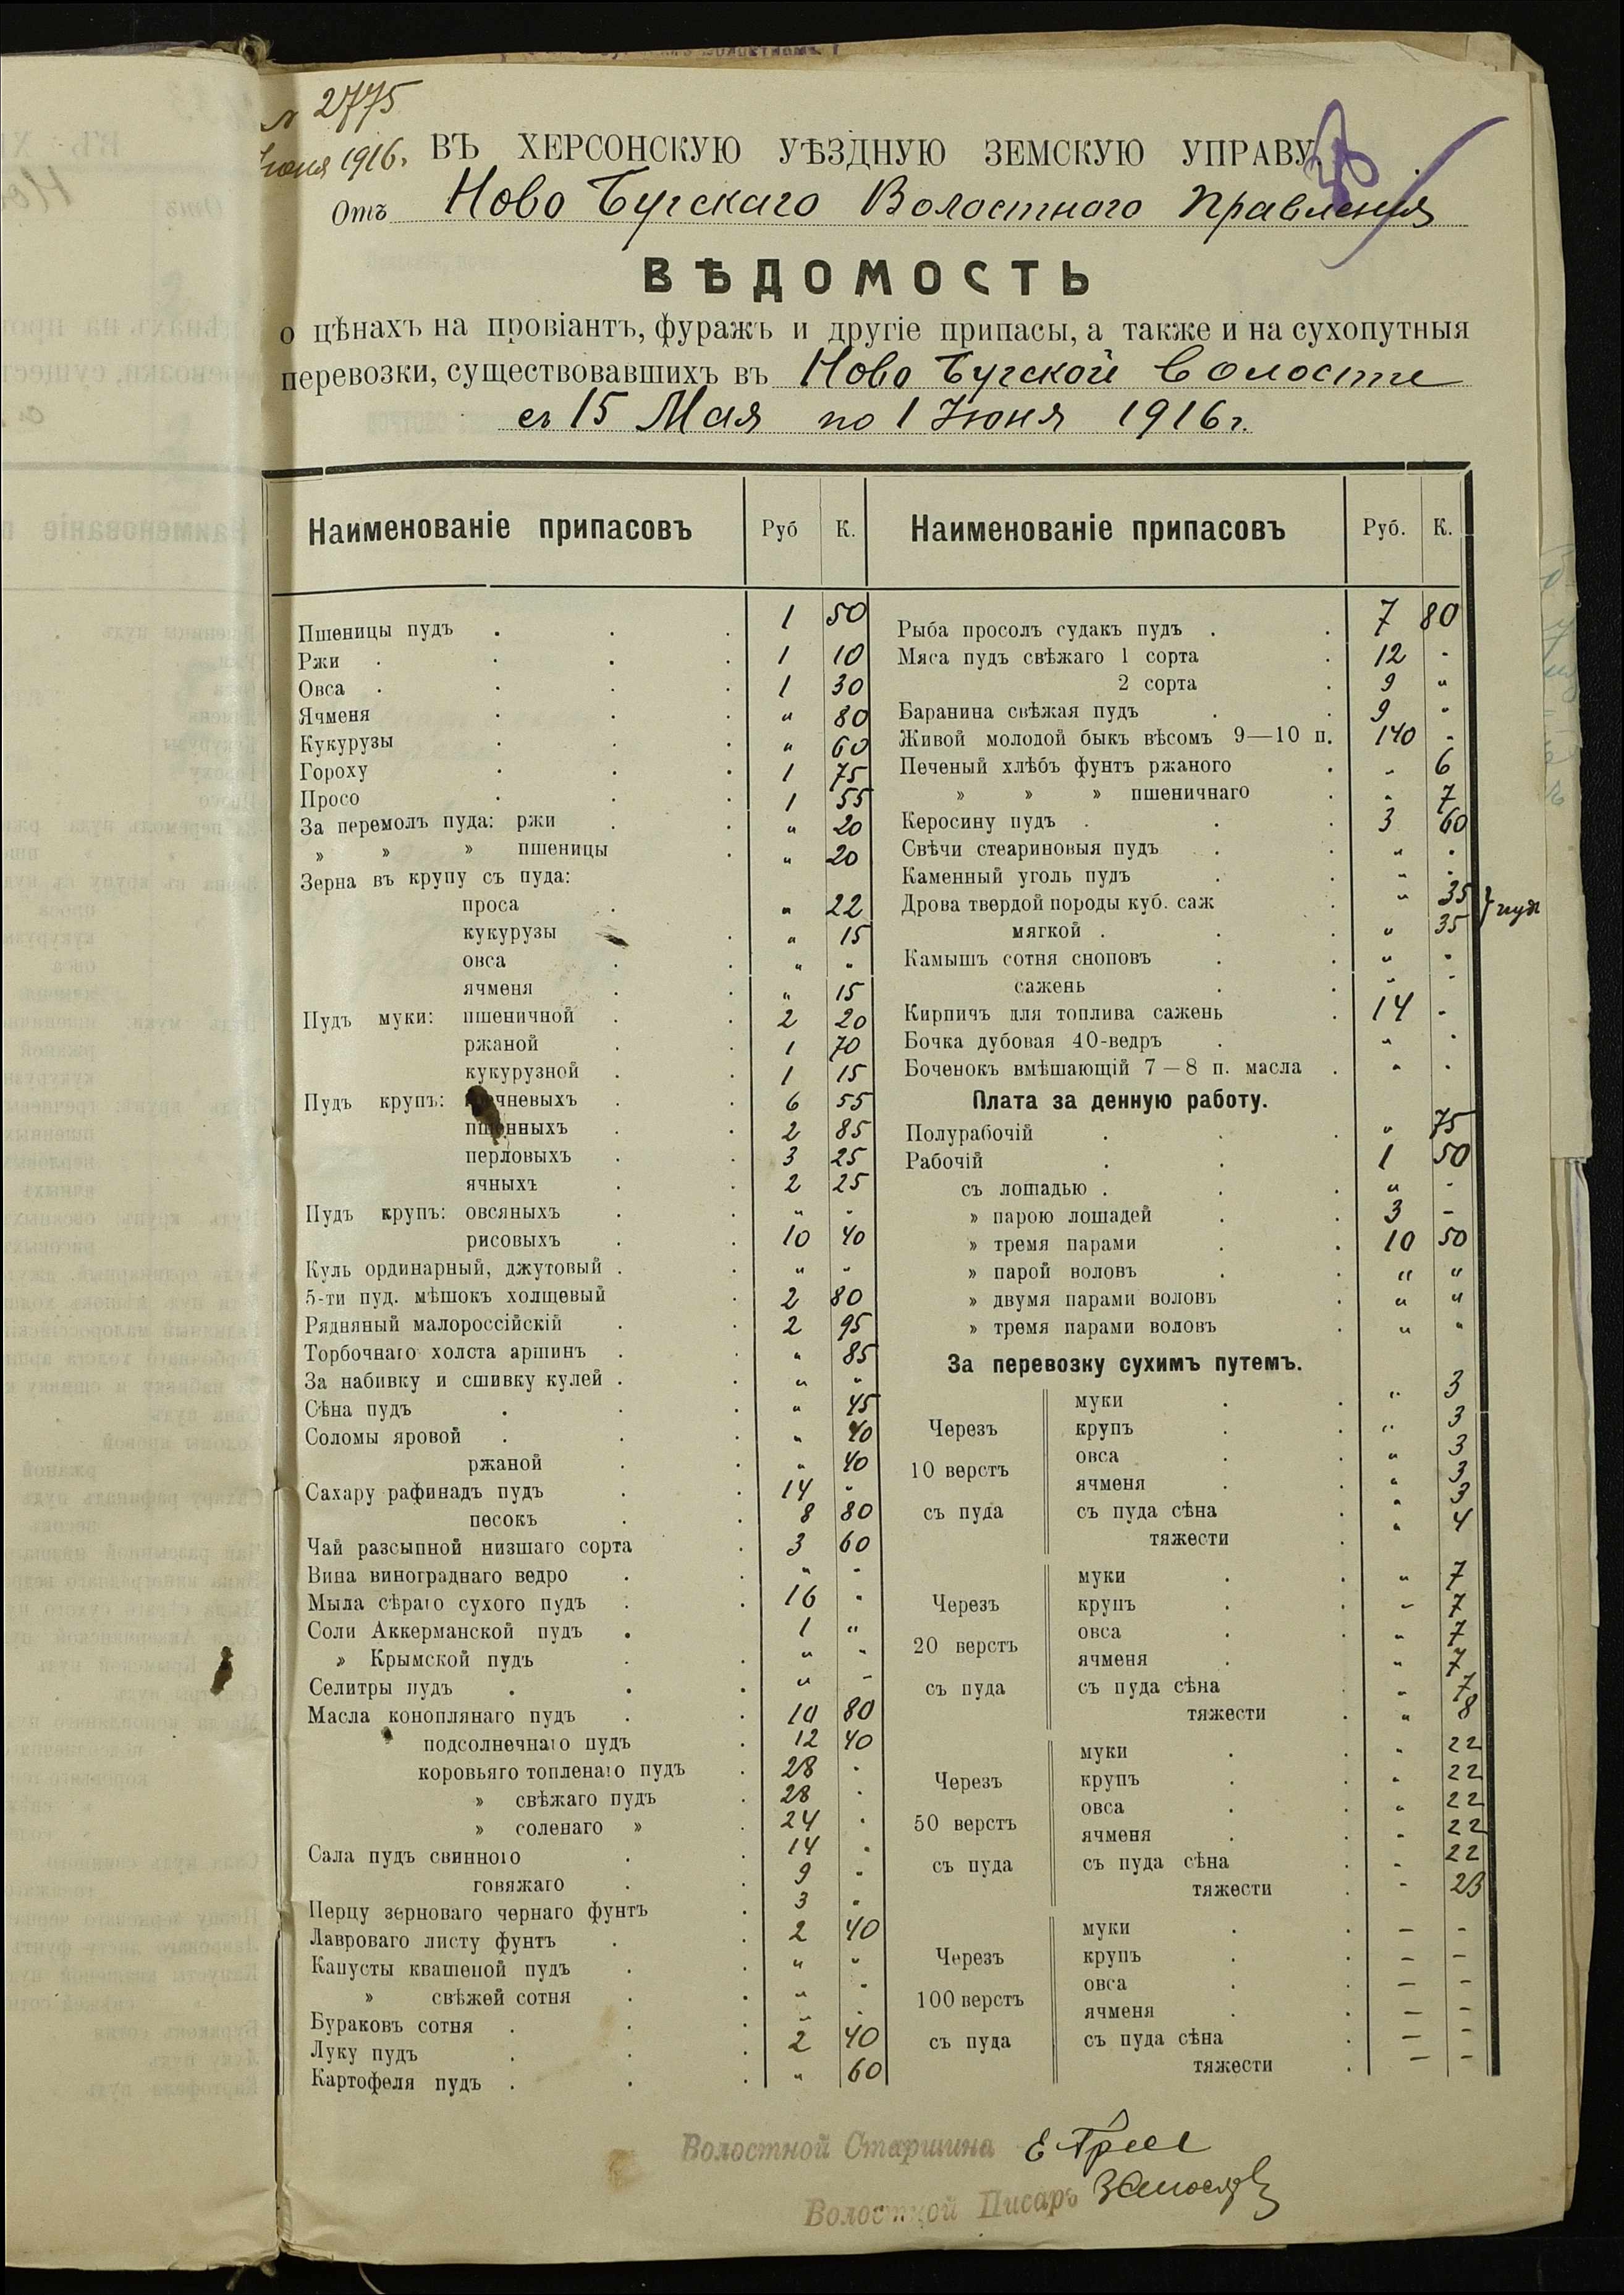 № 2775
Июня 1916 г.
ВЪ ХЕРСОНСКУЮ УѢЗДНУЮ ЗЕМСКУЮ УПРАВУ.
Отъ Ново Бугскаго Волостного Правления
ВѢДОМОСТЬ
о цѣнахъ на провіантъ, фуражъ и другіе припасы, а также и на сухопутныя
перевозки, существовавшихъ въ Ново Бугской волости
съ 15 Мая по 1 Июня 1916 г.
Наименованіе припасовъ Руб К.
Пшеницы пудъ 1 50
Ржи 1 10
Овса 1 30
Ячменя " 80
Кукурузы " 60
Гороху 1 75
Просо 1 55
За перемолъ пуда: ржи " 20
» » » пшеницы " 20
Зерна въ крупу съ пуда:
проса " 22
кукурузы " 15
овса " "
ячменя " 15
Пудъ муки: пшеничной 2 20
ржаной 1 70
кукурузной 1 15
Пудъ крупъ: гречневыхъ 6 55
пшенныхъ 2 85
перловыхъ 3 25
ячныхъ 2 25
Пудъ крупъ: овсяныхъ " "
рисовыхъ 10 40
Куль ординарный, джутовый " "
5-ти пуд. мѣшокъ холщевый 2 80
Рядняный малороссійскій 2 95
Торбочнаго холста аршинъ " 85
За набивку и сшивку кулей " "
Сѣна пудъ " 45
Соломы яровой " 40
ржаной " 40
Сахару рафинадъ пудъ 14 "
песокъ 8 80
Чай разсыпной низшаго сорта 3 60
Вина винограднаго ведро " "
Мыла сѣраго сухого пудъ 16 "
Соли Аккерманской пудъ 1 "
» Крымской пудъ " "
Селитры пудъ " -
Масла коноплянаго пудъ 10 80
подсолнечнаго пудъ 12 40
коровьяго топленаго пудъ 28 "
» свѣжаго пудъ 28 "
» соленаго » 24 "
Сала пудъ свинного 14 "
говяжаго 9 "
Перцу зерноваго чернаго фунтъ 3 "
Лавроваго листу фунтъ 2 40
Капусты квашеной пудъ " "
» свѣжей сотня " "
Бураковъ сотня " "
Луку пудъ 2 40
Картофеля пудъ " 60
Наименованіе припасовъ Руб. К.
Рыба просолъ судакъ пудъ 7 80
Мяса пудъ свѣжаго 1 сорта 12 "
2 сорта 9 "
Баранина свѣжая пудъ 9 "
Живой молодой быкъ вѣсомъ 9—10 п. 140 "
Печеный хлѣбъ фунтъ ржаного " 6
» » » пшеничнаго " 7
Керосину пудъ 3 60
Свѣчи стеариновыя пудъ " "
Каменный уголь пудъ " "
Дрова твердой породы куб. саж " 35 } пудъ
мягкой " 35
Камышъ сотня сноповъ " "
сажень " "
Кирпичъ для топлива сажень 14 "
Бочка дубовая 40-ведръ " "
Боченокъ вмѣшающій 7—8 п. масла " "
Плата за денную работу.
Полурабочій " 75
Рабочій 1 50
съ лошадью " "
» парою лошадей 3 -
» тремя парами 10 50
» парой воловъ " "
» двумя парами воловъ " "
» тремя парами воловъ " "
За перевозку сухимъ путемъ.
Черезъ 10 верстъ съ пуда
муки " 3
крупъ " 3
овса " 3
ячменя " 3
съ пуда сѣна " 3
тяжести " 4
Черезъ 20 верстъ съ пуда
муки " 7
крупъ " 7
овса " 7
ячменя " 7
съ пуда сѣна " 7
тяжести " 8
Черезъ 50 верстъ съ пуда
муки " 22
крупъ " 22
овса " 22
ячменя " 22
съ пуда сѣна " 22
тяжести " 23
Черезъ 100 верстъ съ пуда
муки — -
крупъ — -
овса — -
ячменя — -
съ пуда сѣна — -
тяжести — -
Волостной Старшина
Волостной Писарь